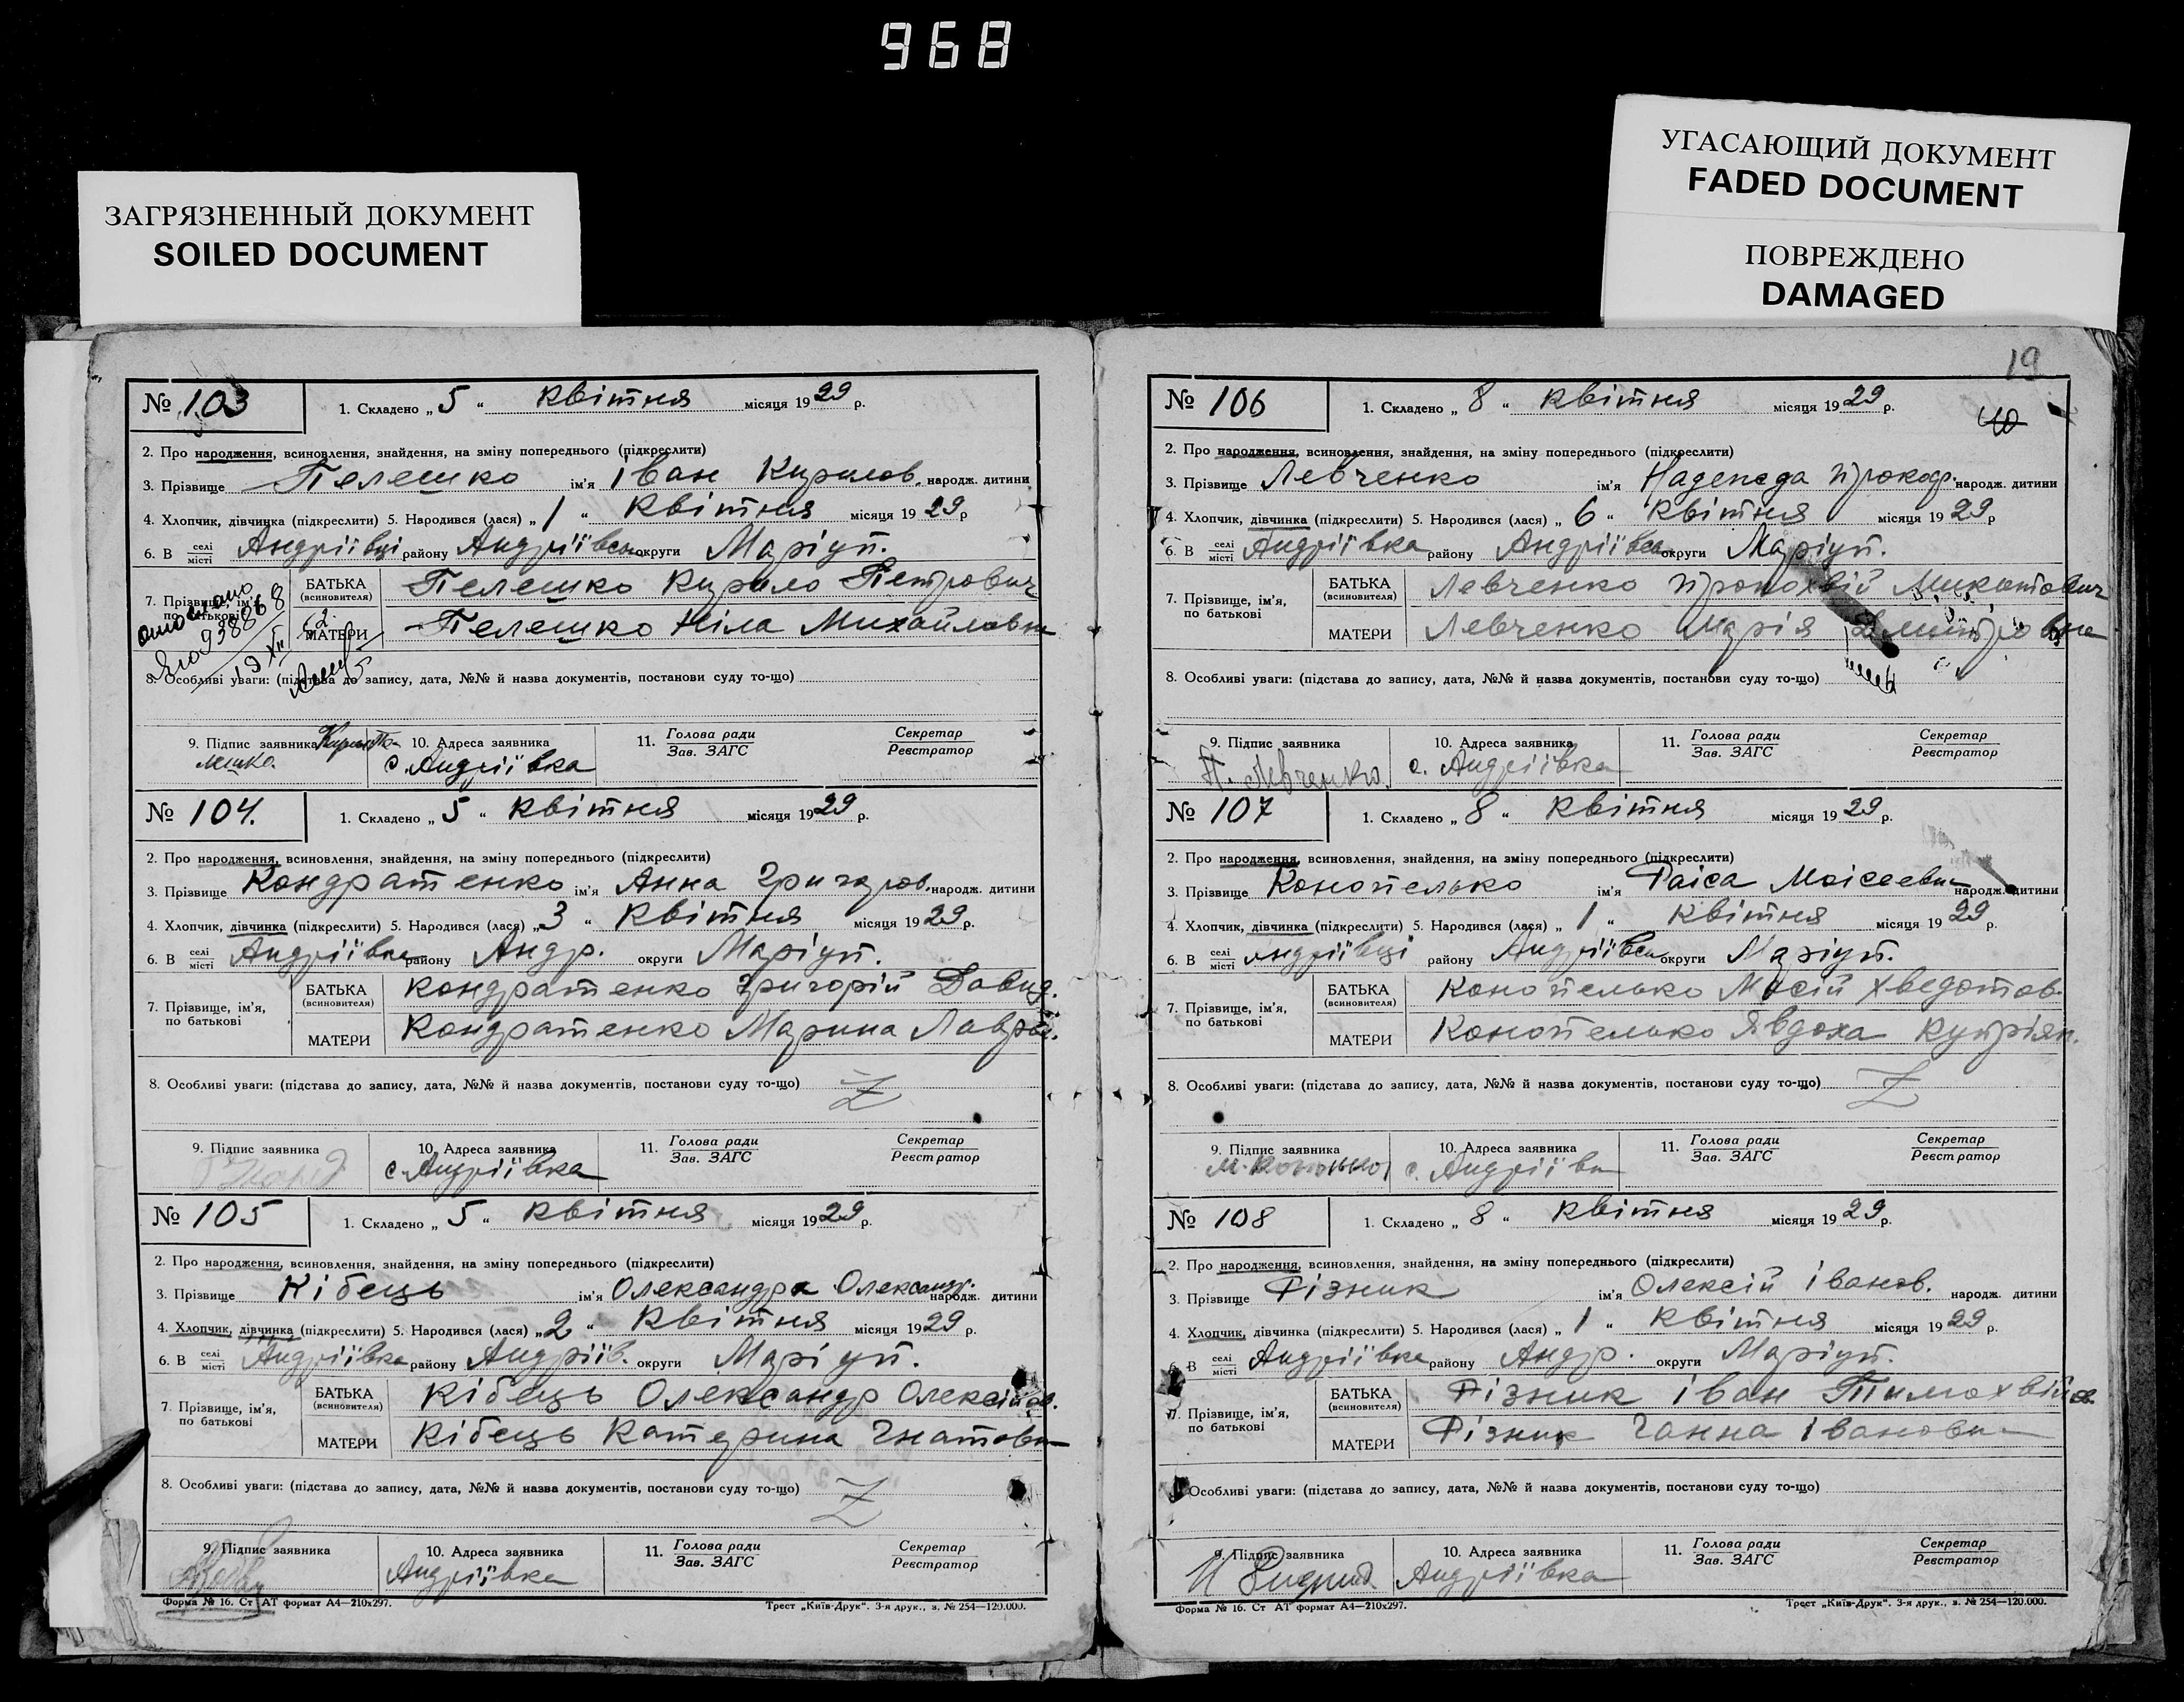 968
ЗАГРЯЗНЕННЫЙ ДОКУМЕНТ
SOILED DOCUMENT
УГАСАЮЩИЙ ДОКУМЕНТ
FADED DOCUMENT
ПОВРЕЖДЕНО
DAMAGED
№ 103
1. Складено „ 5 “ Квітня місяця 1929 р.
2. Про народження, всиновлення, знайдення, на зміну попереднього (підкреслити)
3. Прізвище Пелешко ім'я Іван Кирилов. народж. дитини
4. Хлопчик, дівчинка (підкреслити) 5. Народився (лася) „ 1 “ Квітня місяця 1929 р
6. В селі місті Андріївці району Андріївськ округи Маріуп.
7. Прізвище, ім'я, по батькові
БАТЬКА (всиновителя) Пелешко Кирило Петрович
МАТЕРИ Пелешко Ніла Михайловн
8. Особливі уваги: (підстава до запису, дата, №№ й назва документів, постанови суду то-що)
9. Підпис заявника
10. Адреса заявника с. Андріївка
11. Голова ради Зав. ЗАГС
Секретар Реєстратор
№ 104.
1. Складено „ 5 “ Квітня місяця 1929 р.
2. Про народження, всиновлення, знайдення, на зміну попереднього (підкреслити)
3. Прізвище Кондратенко ім'я Анна Григоров. народж. дитини
4. Хлопчик, дівчинка (підкреслити) 5. Народився (лася) „ 3 “ Квітня місяця 1929 р.
6. В селі місті Андріївка району Андр. округи Маріуп.
7. Прізвище, ім'я, по батькові
БАТЬКА (всиновителя) Кондратенко Григорій Давид.
МАТЕРИ Кондратенко Марина Лаврен.
8. Особливі уваги: (підстава до запису, дата, №№ й назва документів, постанови суду то-що) Z
9. Підпис заявника
10. Адреса заявника с. Андріївка
11. Голова ради Зав. ЗАГС
Секретар Реєстратор
№ 105
1. Складено „ 5 “ Квітня місяця 1929 р.
2. Про народження, всиновлення, знайдення, на зміну попереднього (підкреслити)
3. Прізвище Кібець ім'я Олександра Олександр. народж. дитини
4. Хлопчик, дівчинка (підкреслити) 5. Народився (лася) „ 2 “ Квітня місяця 1929 р.
6. В селі місті Андріївка району Андріїв. округи Маріуп.
7. Прізвище, ім'я, по батькові
БАТЬКА (всиновителя) Кібець Олександр Олексійов.
МАТЕРИ Кібець Катерина Гнатовн
8. Особливі уваги: (підстава до запису, дата, №№ й назва документів, постанови суду то-що) Z
9. Підпис заявника
10. Адреса заявника Андріївка
11. Голова ради Зав. ЗАГС
Секретар Реєстратор
Форма № 16. Ст АТ формат А4—210х297.
Трест „Київ-Друк“. 3-я друк., з. № 254—120.000.
19
№ 106
1. Складено „ 8 “ Квітня місяця 1929 р.
2. Про народження, всиновлення, знайдення, на зміну попереднього (підкреслити)
3. Прізвище Левченко ім'я Надежда Прокоф. народж. дитини
4. Хлопчик, дівчинка (підкреслити) 5. Народився (лася) „ 6 “ Квітня місяця 1929 р
6. В селі місті Андріївка району Андріївськ округи Маріуп.
7. Прізвище, ім'я, по батькові
БАТЬКА (всиновителя) Левченко Прокохвій
МАТЕРИ Левченко Марія Дмитровна
8. Особливі уваги: (підстава до запису, дата, №№ й назва документів, постанови суду то-що)
9. Підпис заявника П. Левченко.
10. Адреса заявника с. Андріївка
11. Голова ради Зав. ЗАГС
Секретар Реєстратор
№ 107
1. Складено „ 8 “ Квітня місяця 1929 р.
2. Про народження, всиновлення, знайдення, на зміну попереднього (підкреслити)
3. Прізвище Конопелько ім'я Раіса Моісеевн народж. дитини
4. Хлопчик, дівчинка (підкреслити) 5. Народився (лася) „ 1 “ Квітня місяця 1929 р.
6. В селі місті Андріївці району Андріївськ округи Маріуп.
7. Прізвище, ім'я, по батькові
БАТЬКА (всиновителя) Конопелько Мосій Хведотов.
МАТЕРИ Конопелько Явдоха Купріян.
8. Особливі уваги: (підстава до запису, дата, №№ й назва документів, постанови суду то-що) Z
9. Підпис заявника
10. Адреса заявника с. Андріївк
11. Голова ради Зав. ЗАГС
Секретар Реєстратор
№ 108
1. Складено „ 8 “ Квітня місяця 1929 р.
2. Про народження, всиновлення, знайдення, на зміну попереднього (підкреслити)
3. Прізвище Різник ім'я Олексій Іванов. народж. дитини
4. Хлопчик, дівчинка (підкреслити) 5. Народився (лася) „ 1 “ Квітня місяця 1929 р.
6. В селі місті Андріївка району Андр. округи Маріуп.
7. Прізвище, ім'я, по батькові
БАТЬКА (всиновителя) Різник Іван Тимохвійов.
МАТЕРИ Різник Ганна Івановн
8. Особливі уваги: (підстава до запису, дата, №№ й назва документів, постанови суду то-що)
9. Підпис заявника
10. Адреса заявника Андріївка
11. Голова ради Зав. ЗАГС
Секретар Реєстратор
Форма № 16. Ст АТ формат А4—210х297.
Трест „Київ-Друк“. 3-я друк., з. № 254—120.000.